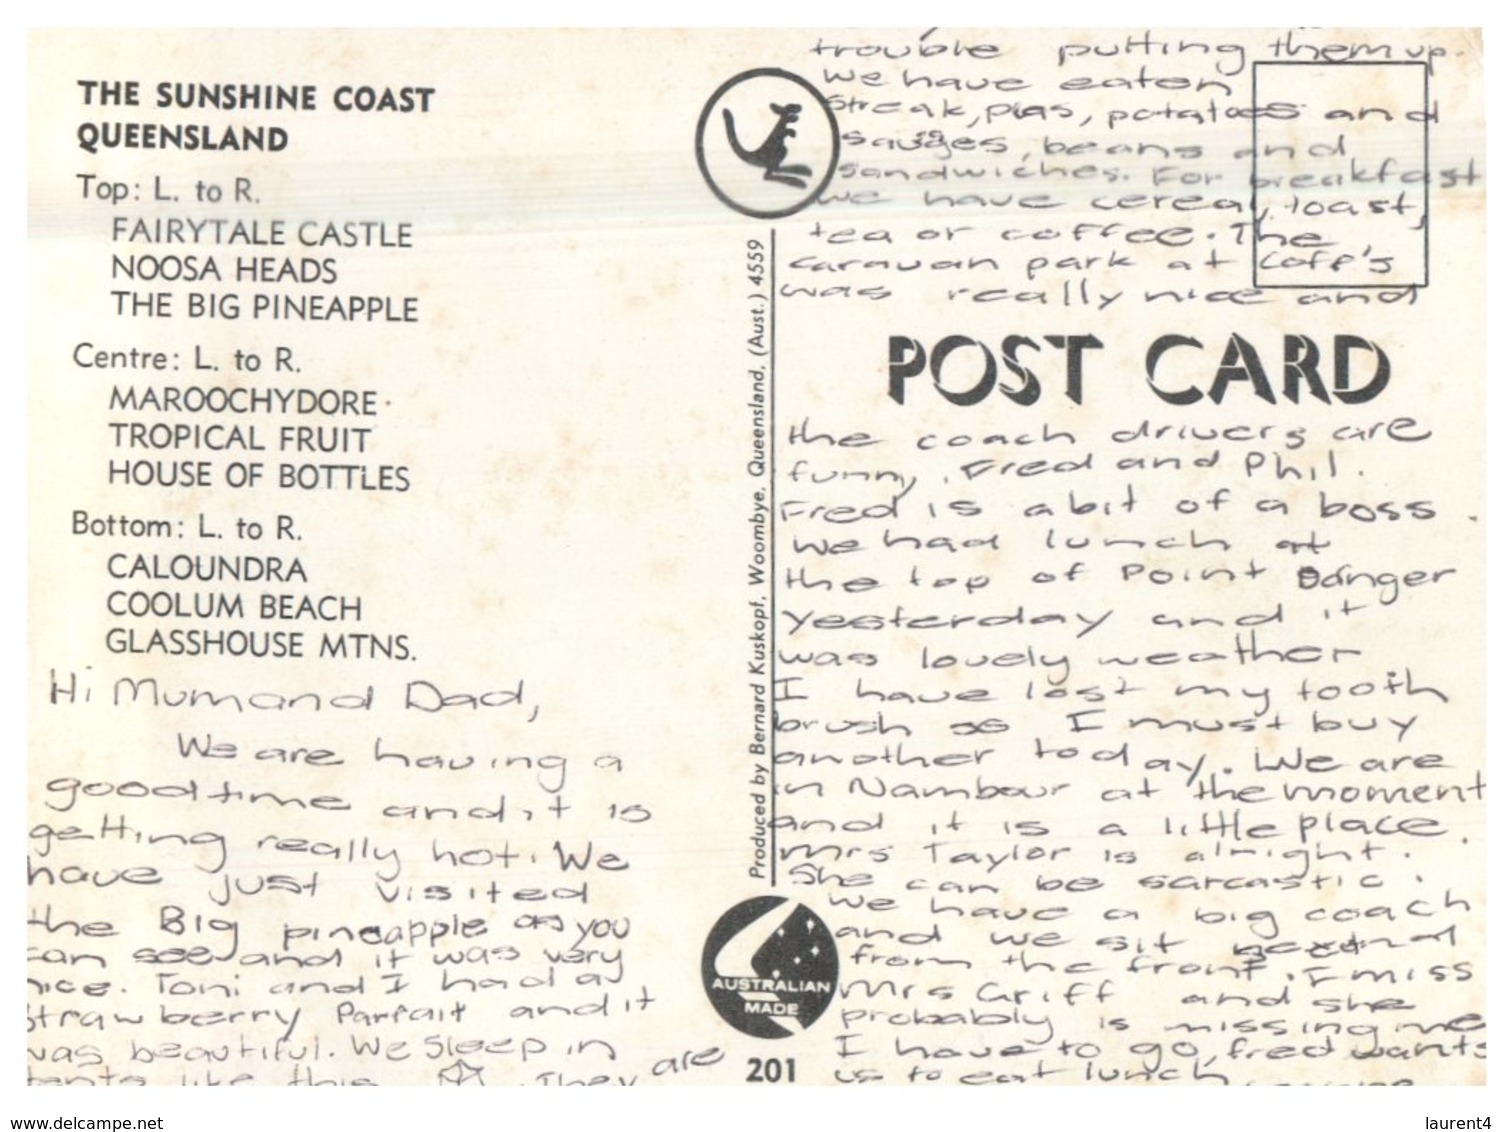 THE SUNSHINE COAST
QUEENSLAND
Top: L. to R.
FAIRYTALE CASTLE
NOOSA HEADS
THE BIG PINEAPPLE
Centre: L. to R.
MAROOCHYDORE
TROPICAL FRUIT
HOUSE OF BOTTLES
Bottom: L. to R.
CALOUNDRA
COOLUM BEACH
GLASSHOUSE MTNS.
Hi Mum and Dad,
We are having a
good time and it is
getting really hot. We
have just visited
the Big pineapple as you
can see and it was very
nice. Toni and I had a
strawberry Parfait and it
was beautiful. We sleep in
tents like this They are
trouble putting them up.
We have eaten
Streak, pias, potatoes and
sauges, beans and
sandwiches. For breakfast
we have cereal, toast,
tea or coffee. The
caravan park at Coff's
was really nice and
POST CARD
the coach drivers are
funny, Fred and Phil.
Fred is a bit of a boss.
We had lunch at
the top of Point Danger
yesterday and it
was lovely weather
I have lost my tooth
brush so I must buy
another today. We are
in Nambour at the moment
and it is a little place.
Mrs Taylor is alright.
She can be sarcastic.
We have a big coach
and we sit
from the front. I miss
Mrs Griff and she
probably is missing me
I have to go, fred wants
us to eat lunch
Produced by Bernard Kuskopf, Woombye, Queensland, (Aust.) 4559
AUSTRALIAN
MADE
201
www.delcampe.net
laurent4